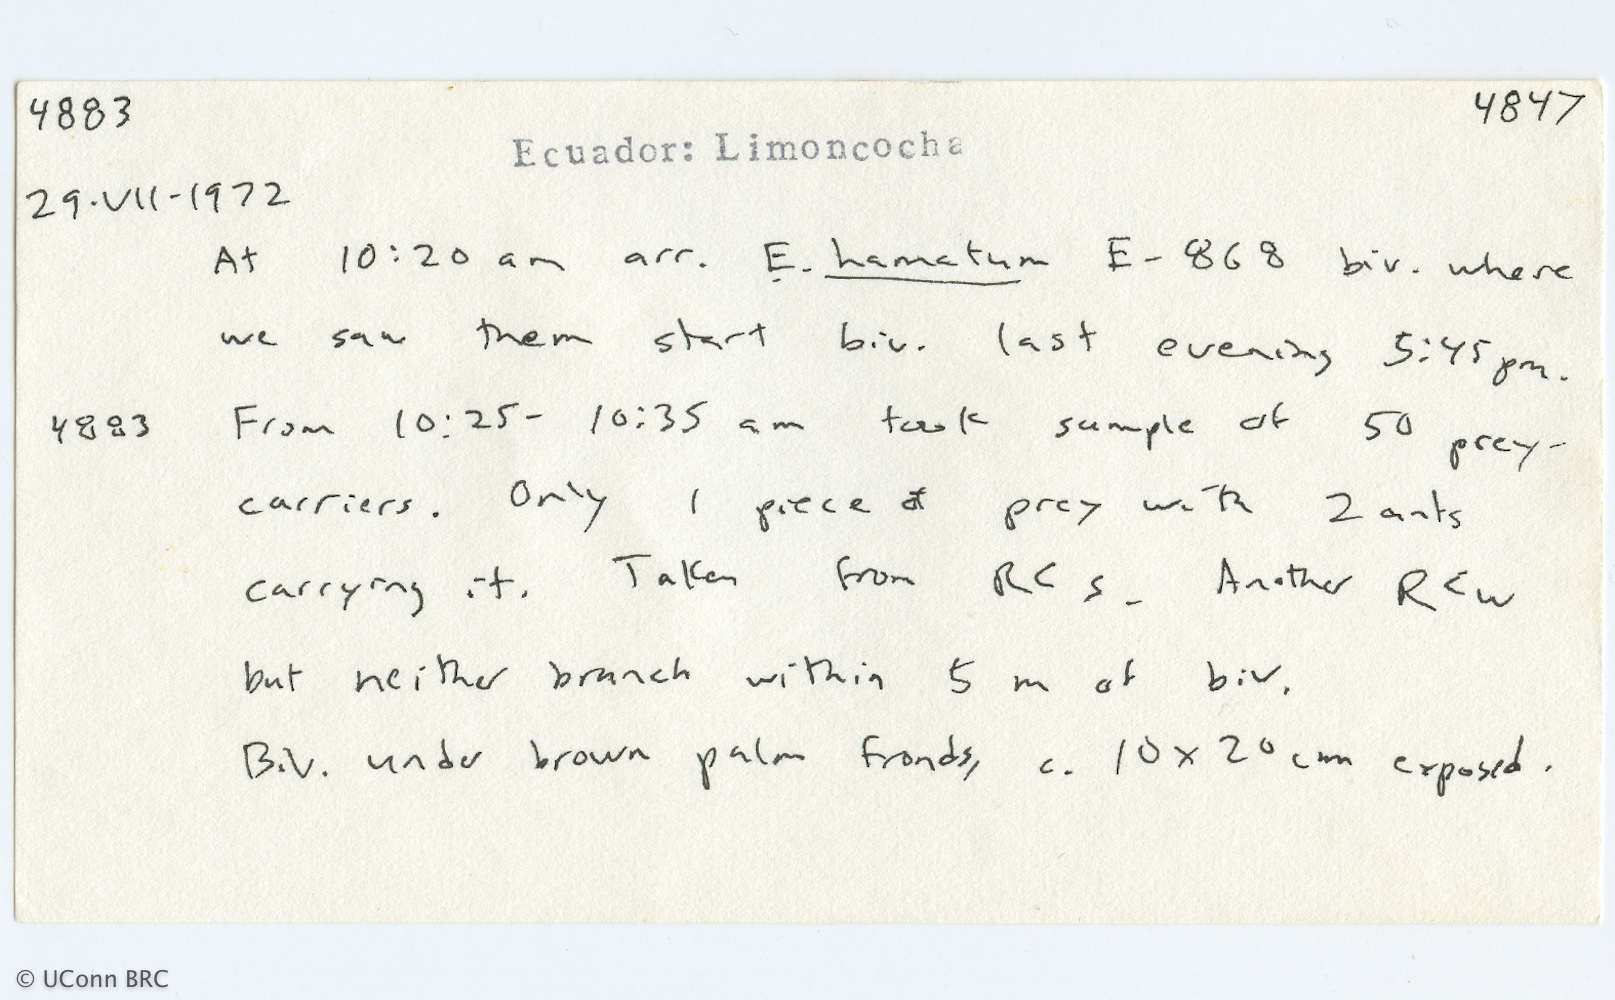 4883
4847
Ecuador: Limoncocha
29.VII-1972
At 10:20 am arr. E. hamatum E-868 biv. where
we saw them start biv. last evening 5:45 pm.
4883 From 10:25-10:35 am took sample of 50 prey-
carriers. Only 1 piece of prey with 2 ants
carrying it. Taken from RC s. Another RC w
but neither branch within 5 m of biv.
Biv. under brown palm fronds, c. 10 x 20 cm exposed.
© UConn BRC